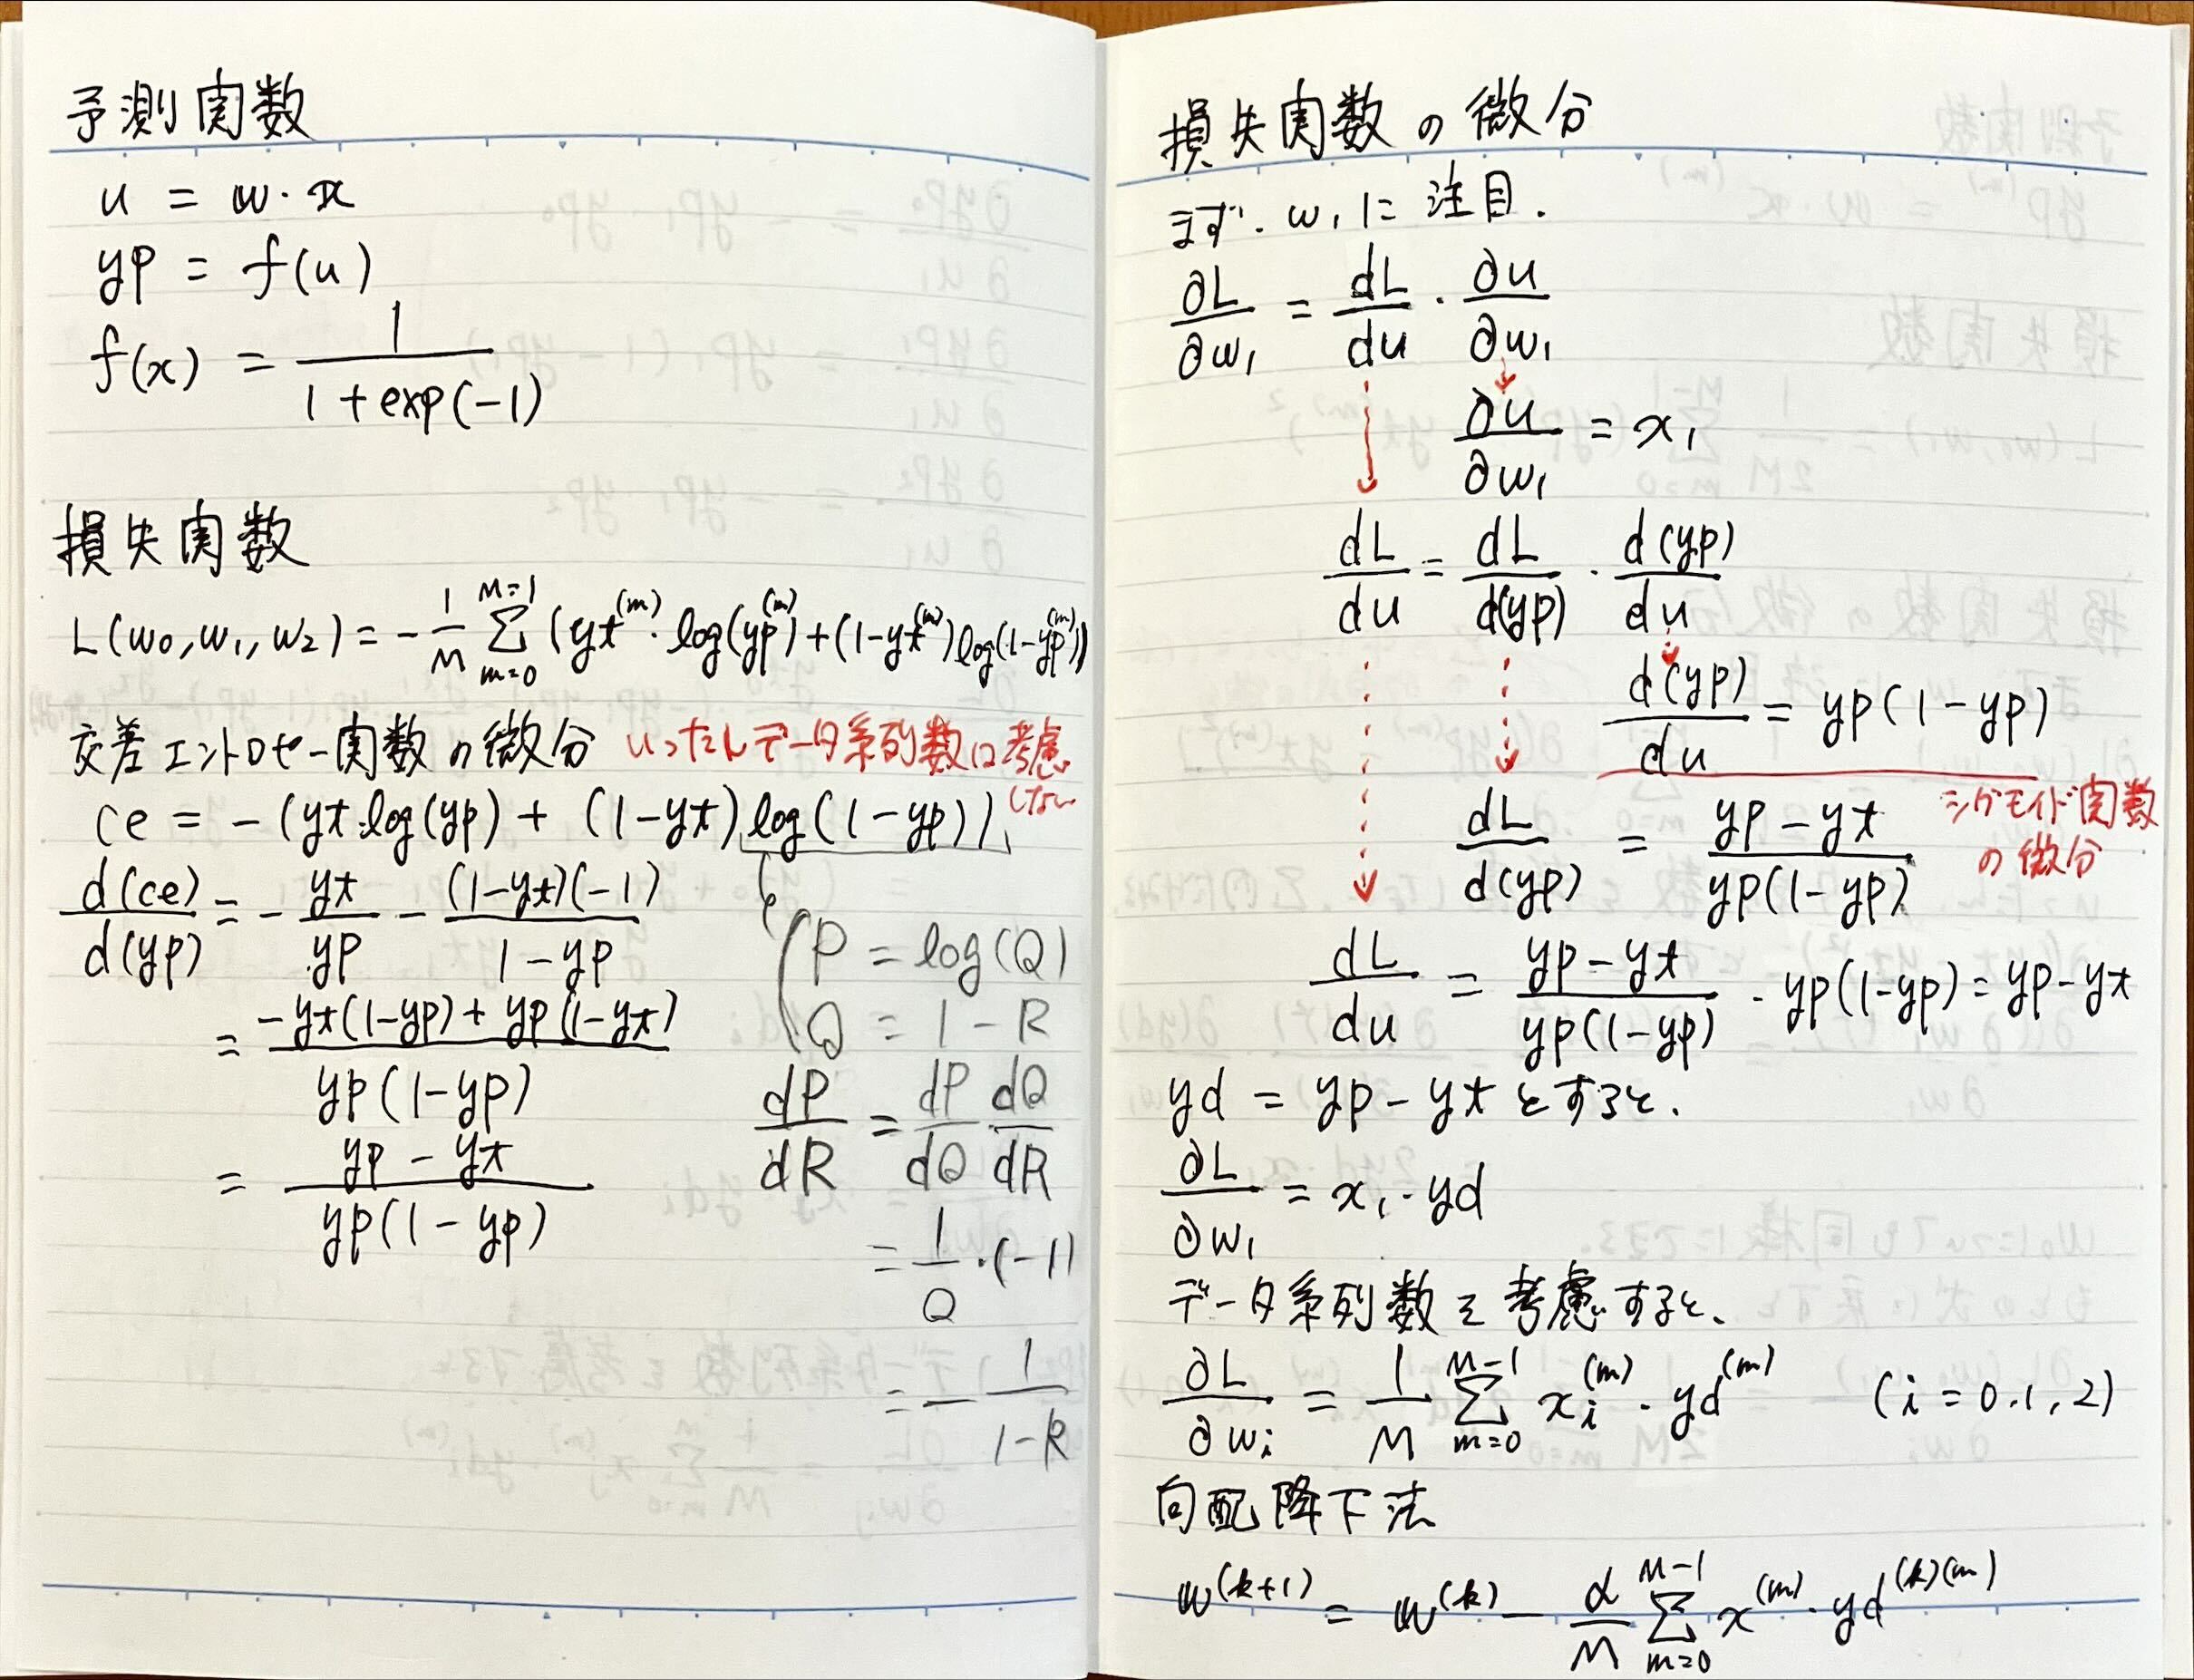 予測関数
u = w・x
yp = f(u)
f(x) = 1/(1+exp(-1))
損失関数
L(w₀,w₁,w₂) = -1/M Σ_{m=0}^{M=1} (yt^(m)・log(yp^(m))+(1-yt^(m))log(1-yp^(m)))
交差エントロピー関数の微分 いったんデータ系列数は考慮
しない
ce = -(yt・log(yp) + (1-yt)log(1-yp))
d(ce)/d(yp) = -yt/yp - (1-yt)(-1)/(1-yp)
= (-yt(1-yp)+yp(1-yt))/(yp(1-yp))
= (yp-yt)/(yp(1-yp))
P = log(Q)
Q = 1-R
dP/dR = dP/dQ dQ/dR
= 1/Q・(-1)
= -1/(1-R)
損失関数の微分
まず、w₁に注目.
∂L/∂w₁ = dL/du・∂u/∂w₁
∂u/∂w₁ = x₁
dL/du = dL/d(yp)・d(yp)/du
d(yp)/du = yp(1-yp)
シグモイド関数
の微分
dL/d(yp) = (yp-yt)/(yp(1-yp))
dL/du = (yp-yt)/(yp(1-yp))・yp(1-yp) = yp-yt
yd = yp-yt とすると、
∂L/∂w₁ = x₁・yd
データ系列数を考慮すると、
∂L/∂wᵢ = 1/M Σ_{m=0}^{M-1} xᵢ^(m)・yd^(m) (i = 0,1,2)
勾配降下法
w^(k+1) = w^(k) - α/M Σ_{m=0}^{M-1} x^(m)・yd^(k)(m)